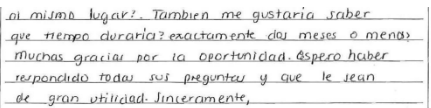 al mismo lugar?. Tambien me gustaria saber
que tiempo duraria? exactamente dos meses o menos?
Muchas gracias por la oportunidad. Espero haber
respondido todas sus preguntas y que le sean
de gran utilidad. Sinceramente,